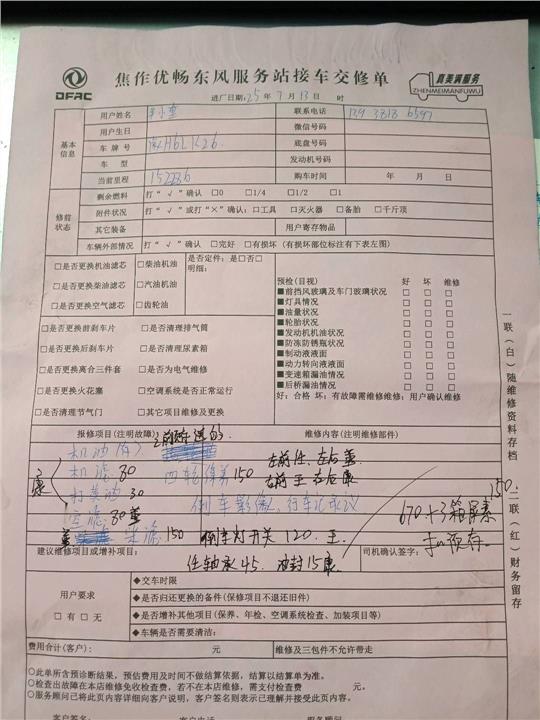 DFAC 焦作优畅东风服务站接车交修单 真美满服务
ZHENMEIMANFUWU
进厂日期:25年7月13日 时
基本信息
用户姓名 联系电话 139 3818 6597
用户生日 微信号码
车牌号 H6LK26 底盘号码
车型 发动机号码
当前里程 152286 购车时间 年 月 日
修前状态
剩余燃料 打“√”确认 □0 □1/4 □1/2 □1
附件状况 打“√”或打“×”确认:□工具 □灭火器 □备胎 □千斤顶
其它装备 用户寄存物品
车辆外部情况 打“√”确认 □完好 □有损坏(有损坏部位标注有下表左图)
□是否更换机油滤芯 □柴油机油 是否定件:是□否□
明细:
□是否更换柴油滤芯 □汽油机油
□是否更换空气滤芯 □齿轮油
预检(目视) 好 坏 维修
■前挡风玻璃及车门玻璃状况 □ □ □
■灯具情况 □ □ □
■油量状况 □ □ □
■轮胎状况 □ □ □
■发动机机油状况 □ □ □
■防冻防锈瓶状况 □ □ □
■制动液液面 □ □ □
■动力转向液液面 □ □ □
■变速箱漏油情况 □ □ □
■后桥漏油情况 □ □ □
好:合格 坏:有故障需维修维修:用户确认维修
□是否更换前刹车片 □是否清理排气筒
□是否更换后刹车片 □是否清理尿素箱
□是否更换离合三件套 □是否为电气维修
□是否更换火花塞 □空调系统是否正常运行
□是否清理节气门 □其它项目维修及更换
报修项目(注明故障) 维修内容(注明维修部件)
机油
机滤 80 四轮保养 150 左前任、左后董
康 打黄油 30 右前王 右后康
空滤 80董 倒车影像、行车记录仪
董 柴滤 150 倒车灯开关 120.王
150.
670+3箱尿素
预存.
建议维修项目或增补项目: 司机确认签字:
任轴承45. 油封15康
用户要求
□有 □无
◆交车时限
◆是否归还更换的备件(保修项目不退还旧件)
◆是否增补其他项目(保养、年检、空调系统检查、加装项目等)
◆车辆是否需要清洁:
费用合计(客户): 元 维修及三包件不允许带走
○此单所含预诊断结果,预估费用及时间不做结算依据,结算以结算单为准。
○检查出故障在本店维修免收检查费,若不在本店维修,需支付检查费 元。
○服务顾问已将此页内容详细向客户说明,客户签名则表示已理解并接受此页内容。
客户签名: 客户电话 服务顾问
一联(白)随维修资料存档 二联(红)财务留存